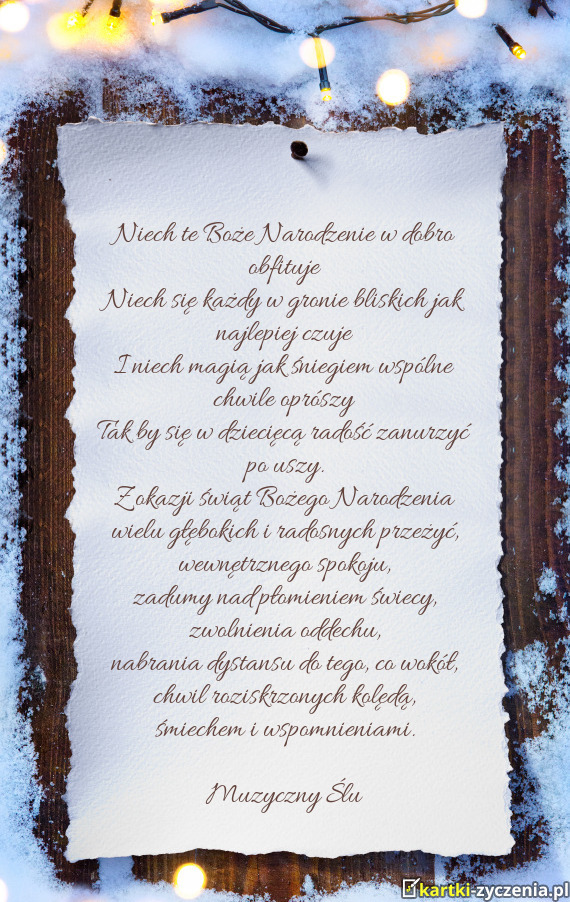 Niech te Boże Narodzenie w dobro
obfituje
Niech się każdy w gronie bliskich jak
najlepiej czuje
I niech magią jak śniegiem wspólne
chwile oprószy
Tak by się w dziecięcą radość zanurzyć
po uszy.
Z okazji świąt Bożego Narodzenia
wielu głębokich i radosnych przeżyć,
wewnętrznego spokoju,
zadumy nad płomieniem świecy,
zwolnienia oddechu,
nabrania dystansu do tego, co wokół,
chwil roziskrzonych kolędą,
śmiechem i wspomnieniami.
Muzyczny Ślu
kartki-zyczenia.pl